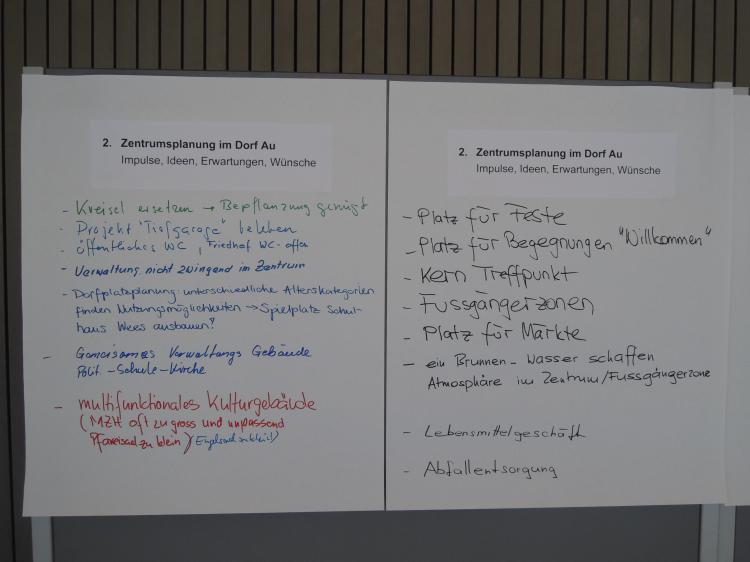 2. Zentrumsplanung im Dorf Au
Impulse, Ideen, Erwartungen, Wünsche
- Kreisel ersetzen → Bepflanzung genügt
- Projekt "Tiefgarage" beleben
- öffentliches WC, Friedhof WC offen
- Verwaltung nicht zwingend im Zentrum
- Dorfplatzplanung: unterschiedliche Alterskategorien
finden Nutzungsmöglichkeiten → Spielplatz Schul-
haus Wees ausbauen?
- Gemeinsames Verwaltungs Gebäude
Polit. - Schule - Kirche
- multifunktionales Kulturgebäude
(MZH oft zu gross und unpassend
Pfarreisaal zu klein)
2. Zentrumsplanung im Dorf Au
Impulse, Ideen, Erwartungen, Wünsche
- Platz für Feste
- Platz für Begegnungen "Willkommen"
- Kern Treffpunkt
- Fussgängerzonen
- Platz für Märkte
- ein Brunnen - Wasser schaffen
Atmosphäre im Zentrum/Fussgängerzone
- Lebensmittelgeschäft
- Abfallentsorgung